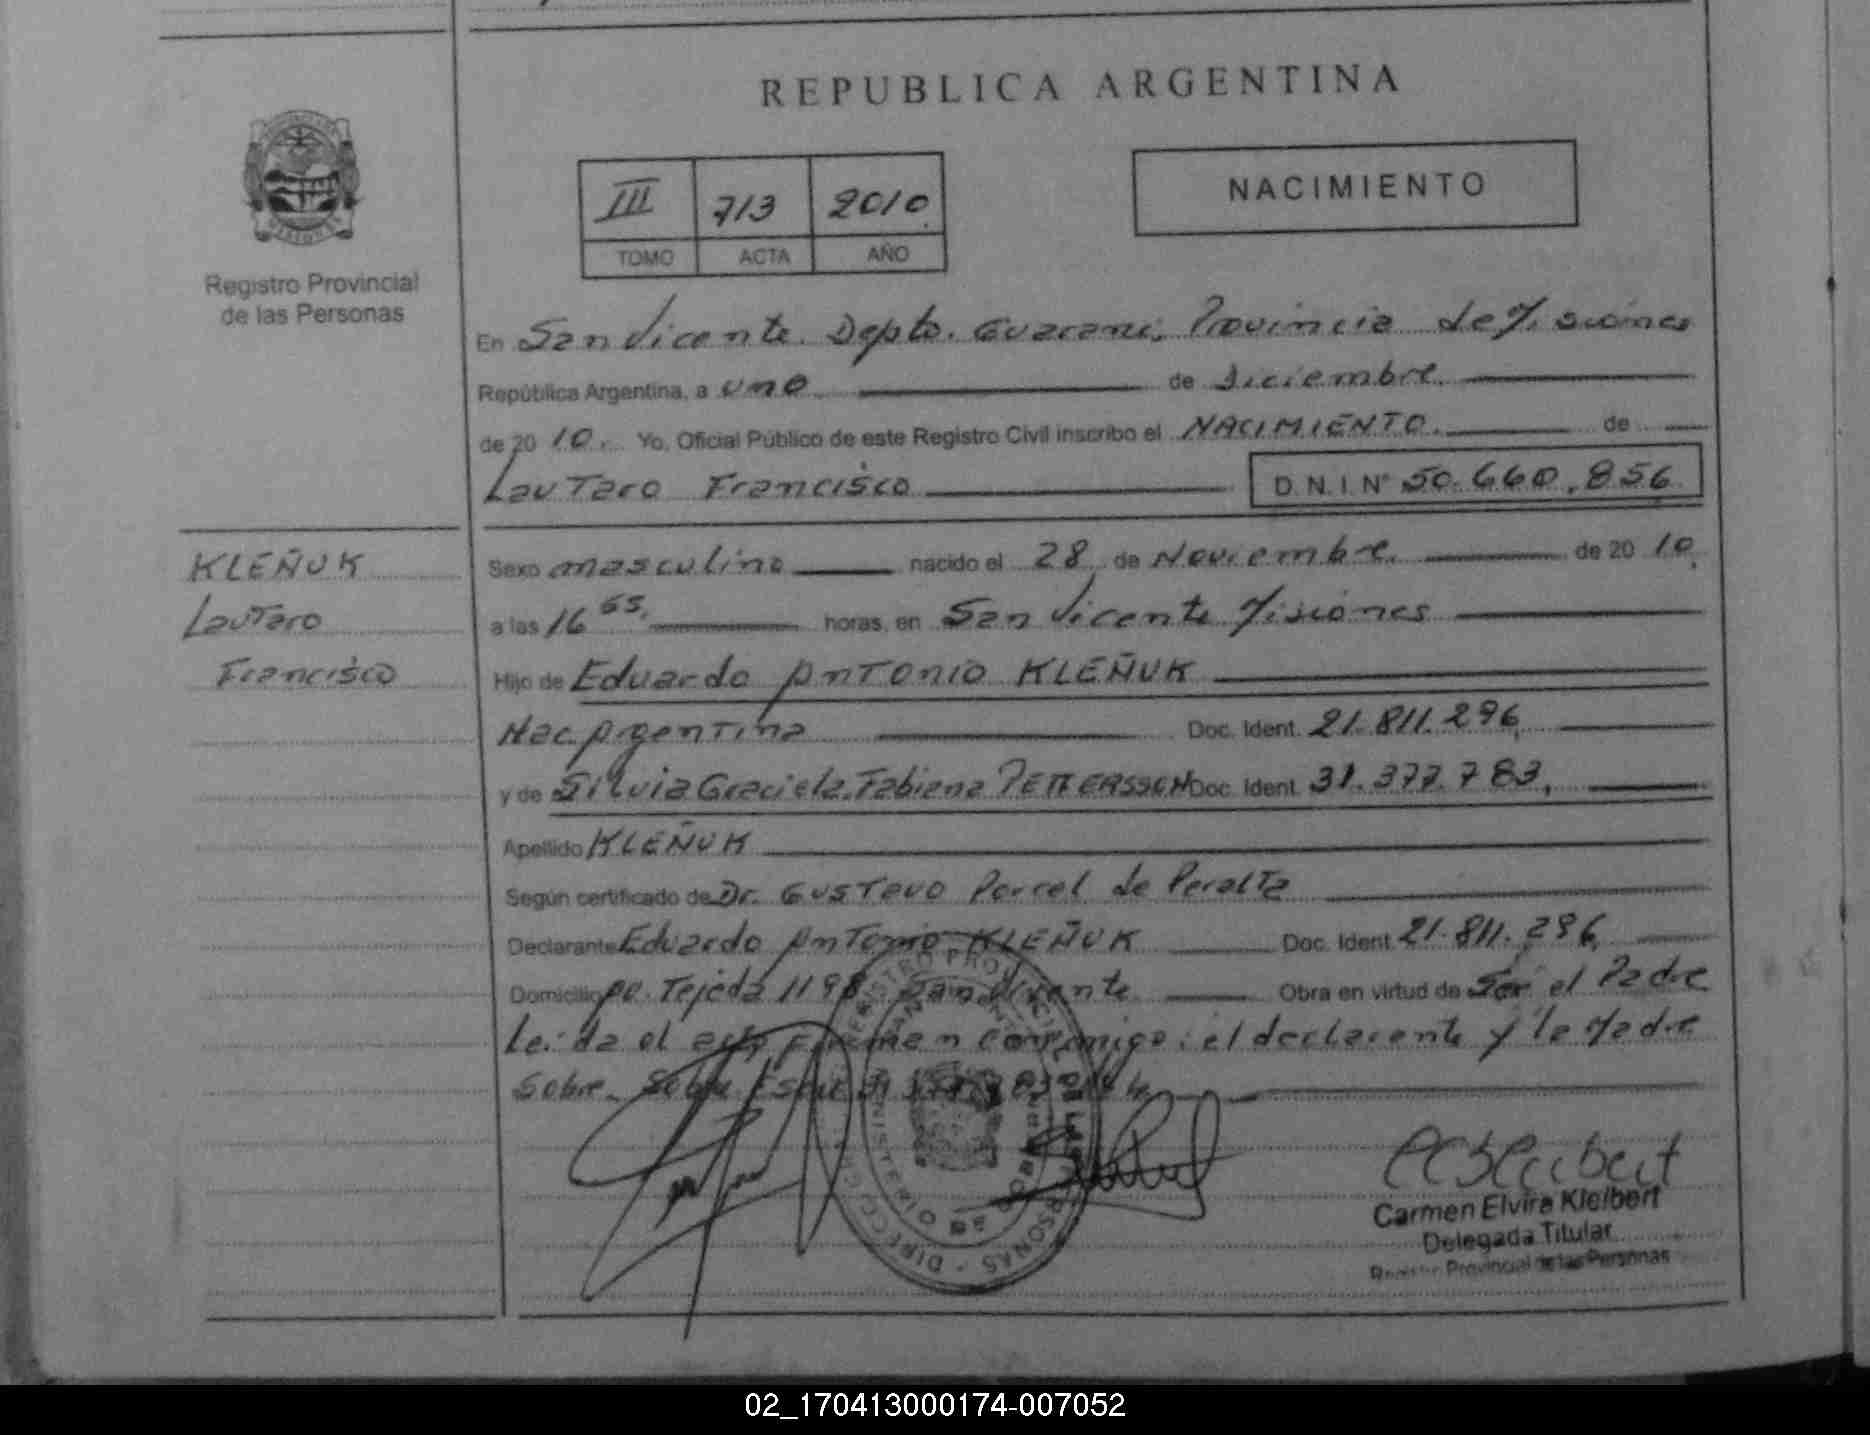 REPUBLICA ARGENTINA
III 713 2010
TOMO ACTA AÑO
NACIMIENTO
Registro Provincial
de las Personas
En San Vicente. Depto. Guarani, Provincia de Misiones
República Argentina, a uno de Diciembre.
de 20 10. Yo, Oficial Público de este Registro Civil inscribo el NACIMIENTO. de
Lautaro Francisco D.N.I. Nº 50.660.856
KLEÑUK
Lautaro
Francisco
Sexo masculino nacido el 28 de Noviembre. de 20 10.
a las 16 horas, en San Vicente Misiones
Hijo de Eduardo Antonio KLEÑUK
Nac. Argentina Doc. Ident. 21.811.296,
y de Silvia Graciela Fabiana PETTERSSON Doc. Ident. 31.377.783,
Apellido KLEÑUK
Según certificado de Dr. Gustavo Porcel de Peralta
Declarante Eduardo Antonio KLEÑUK Doc. Ident. 21.811.296,
Domicilio Tejeda 1198 San Vicente Obra en virtud de Ser el Padre
Leida el acta Firman conmigo: el declarante y la Madre
Sobre.
Carmen Elvira Kleibert
Delegada Titular
Registro Provincial de las Personas
02_170413000174-007052